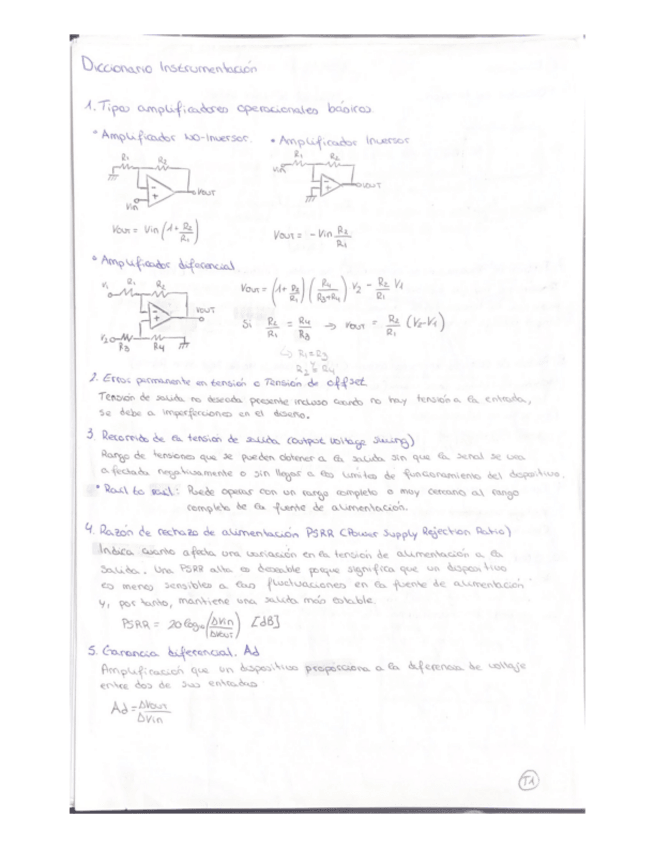 Diccionario Instrumentación
1. Tipos amplificadores operacionales básicos.
• Amplificador No-Inversor. • Amplificador Inversor
R1 R2 R1 R2
Vin
VOUT VOUT
Vin
VOUT = Vin (1 + R2/R1) VOUT = - Vin R2/R1
• Amplificador diferencial
V1 R1 R2
VOUT = (1 + R2/R1) (R4/R3+R4) V2 - R2/R1 V1
VOUT
Si R2/R1 = R4/R3 → VOUT = R2/R1 (V2-V1)
V2 R3 R4
R1 = R3
y
R2 = R4
2. Error permanente en tensión o Tensión de offset
Tensión de salida no deseada presente incluso cuando no hay tensión a la entrada,
se debe a imperfecciones en el diseño.
3. Recorrido de la tensión de salida (output voltage swing)
Rango de tensiones que se pueden obtener a la salida sin que la señal se vea
afectada negativamente o sin llegar a los límites de funcionamiento del dispositivo.
• Rail to rail: Puede operar con un rango completo o muy cercano al rango
completo de la fuente de alimentación.
4. Razón de rechazo de alimentación PSRR (Power Supply Rejection Ratio)
Indica cuanto afecta una variación en la tensión de alimentación a la
salida. Una PSRR alta es deseable porque significa que un dispositivo
es menos sensible a las fluctuaciones en la fuente de alimentación
y, por tanto, mantiene una salida más estable.
PSRR = 20 log10 (ΔVin/ΔVOUT) [dB]
5. Ganancia diferencial. Ad
Amplificación que un dispositivo proporciona a la diferencia de voltaje
entre dos de sus entradas
Ad = ΔVOUT/ΔVin
T1